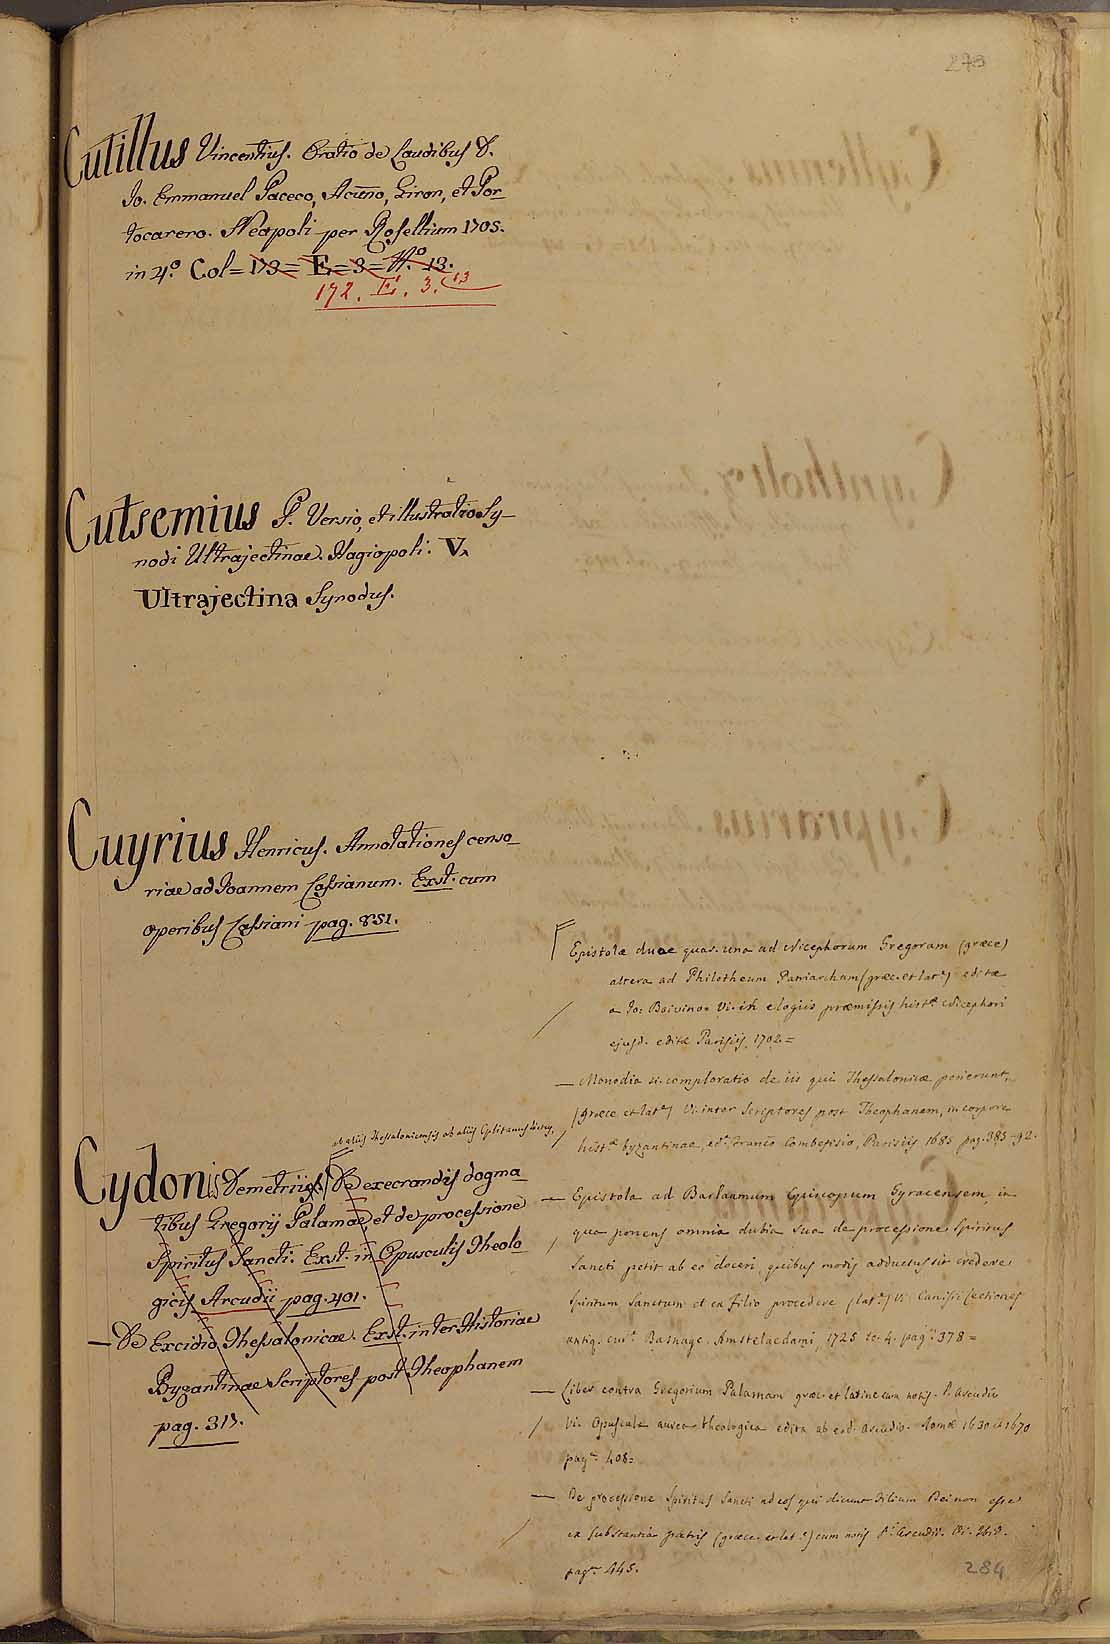 273
Cutillus Vincentius. Oratio de Laudibus D.
Io. Emmanuel Paceco, Acuno, Giron, et Por
tocarero. Neapoli per Rosellium 1705.
in 4.º Col = 173 = E = 3 = N.º 13.
172. E. 3. 13
Cutsemius P. Versio, et illustratio Sy
nodi Ultrajectinae. Hagiopoli. V.
Ultrajectina Synodus.
Cuyrius Henricus. Annotationes censo
riae ad Joannem Cassianum. Exst. cum
operibus Cassiani pag. 851.
ab aliis Thessalonicensis ab aliis
Cydonis Demetrii De execrandis dogma
tibus Gregorij Palamae, et de processione
Spiritus Sancti. Exst. in Opusculis Theolo
gicis Arcudii pag. 401.
— De Excidio Thessalonicae. Exst. inter Historiae
Byzantinae Scriptores post Theophanem
pag. 317.
Epistolæ duae quar. una ad Nicephorum Gregoram (græce)
altera ad Philotheum Patriarcham (græc. et lat.) editæ
a Jo: Boivino Vi. in elogiis præmissis hist.æ Nicephori
ejusd. editæ Parisiis 1702 =
— Monodia si. comploratio de iis qui Thessalonicæ perierunt
(græce et lat.e) Vi. inter Scriptores post Theophanem, in corpore
hist.æ byzantinae, ed. Franco Combefisio, Parisiis 1685 pag. 385-92.
— Epistola ad Barlaamum Episcopum Gyracensem in
qua ponens omnia dubia sua de processione Spiritus
Sancti petit ab eo doceri, quibus modis adductus sit credere
Spiritum Sanctum et ex filio procedere (lat.e) Vi. Canisii Lectiones
antiq. cur. Basnage. Amstelaedami, 1725 to. 4. pag. 378 =
— Liber contra Gregorium Palamam græc. et latine cum notis P. Arcudii
Vi. Opuscula aurea theologica edita ab eod. Arcudio. Romæ 1630 et 1670
pag. 408 =
— De processione Spiritus Sancti ad eos qui dicunt Filium Dei non esse
ex substantia patris (græce et lat.e) cum notis P. Arcudii. Vi. Ibid.
pag. 445.
284